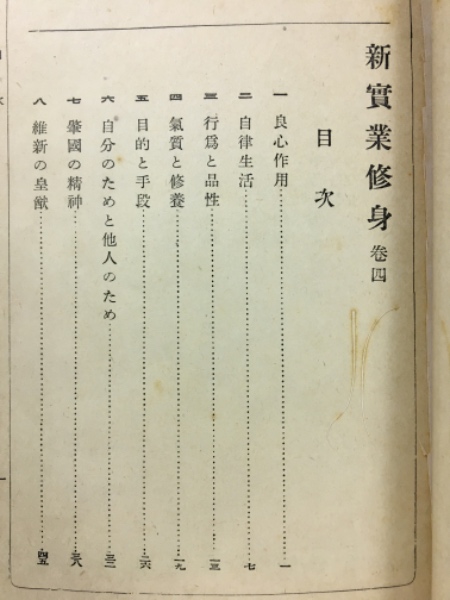 新實業修身 卷四
目次
一 良心作用 一
二 自律生活 七
三 行爲と品性 一三
四 氣質と修養 一九
五 目的と手段 二六
六 自分のためと他人のため 三二
七 肇國の精神 三八
八 維新の皇猷 四五